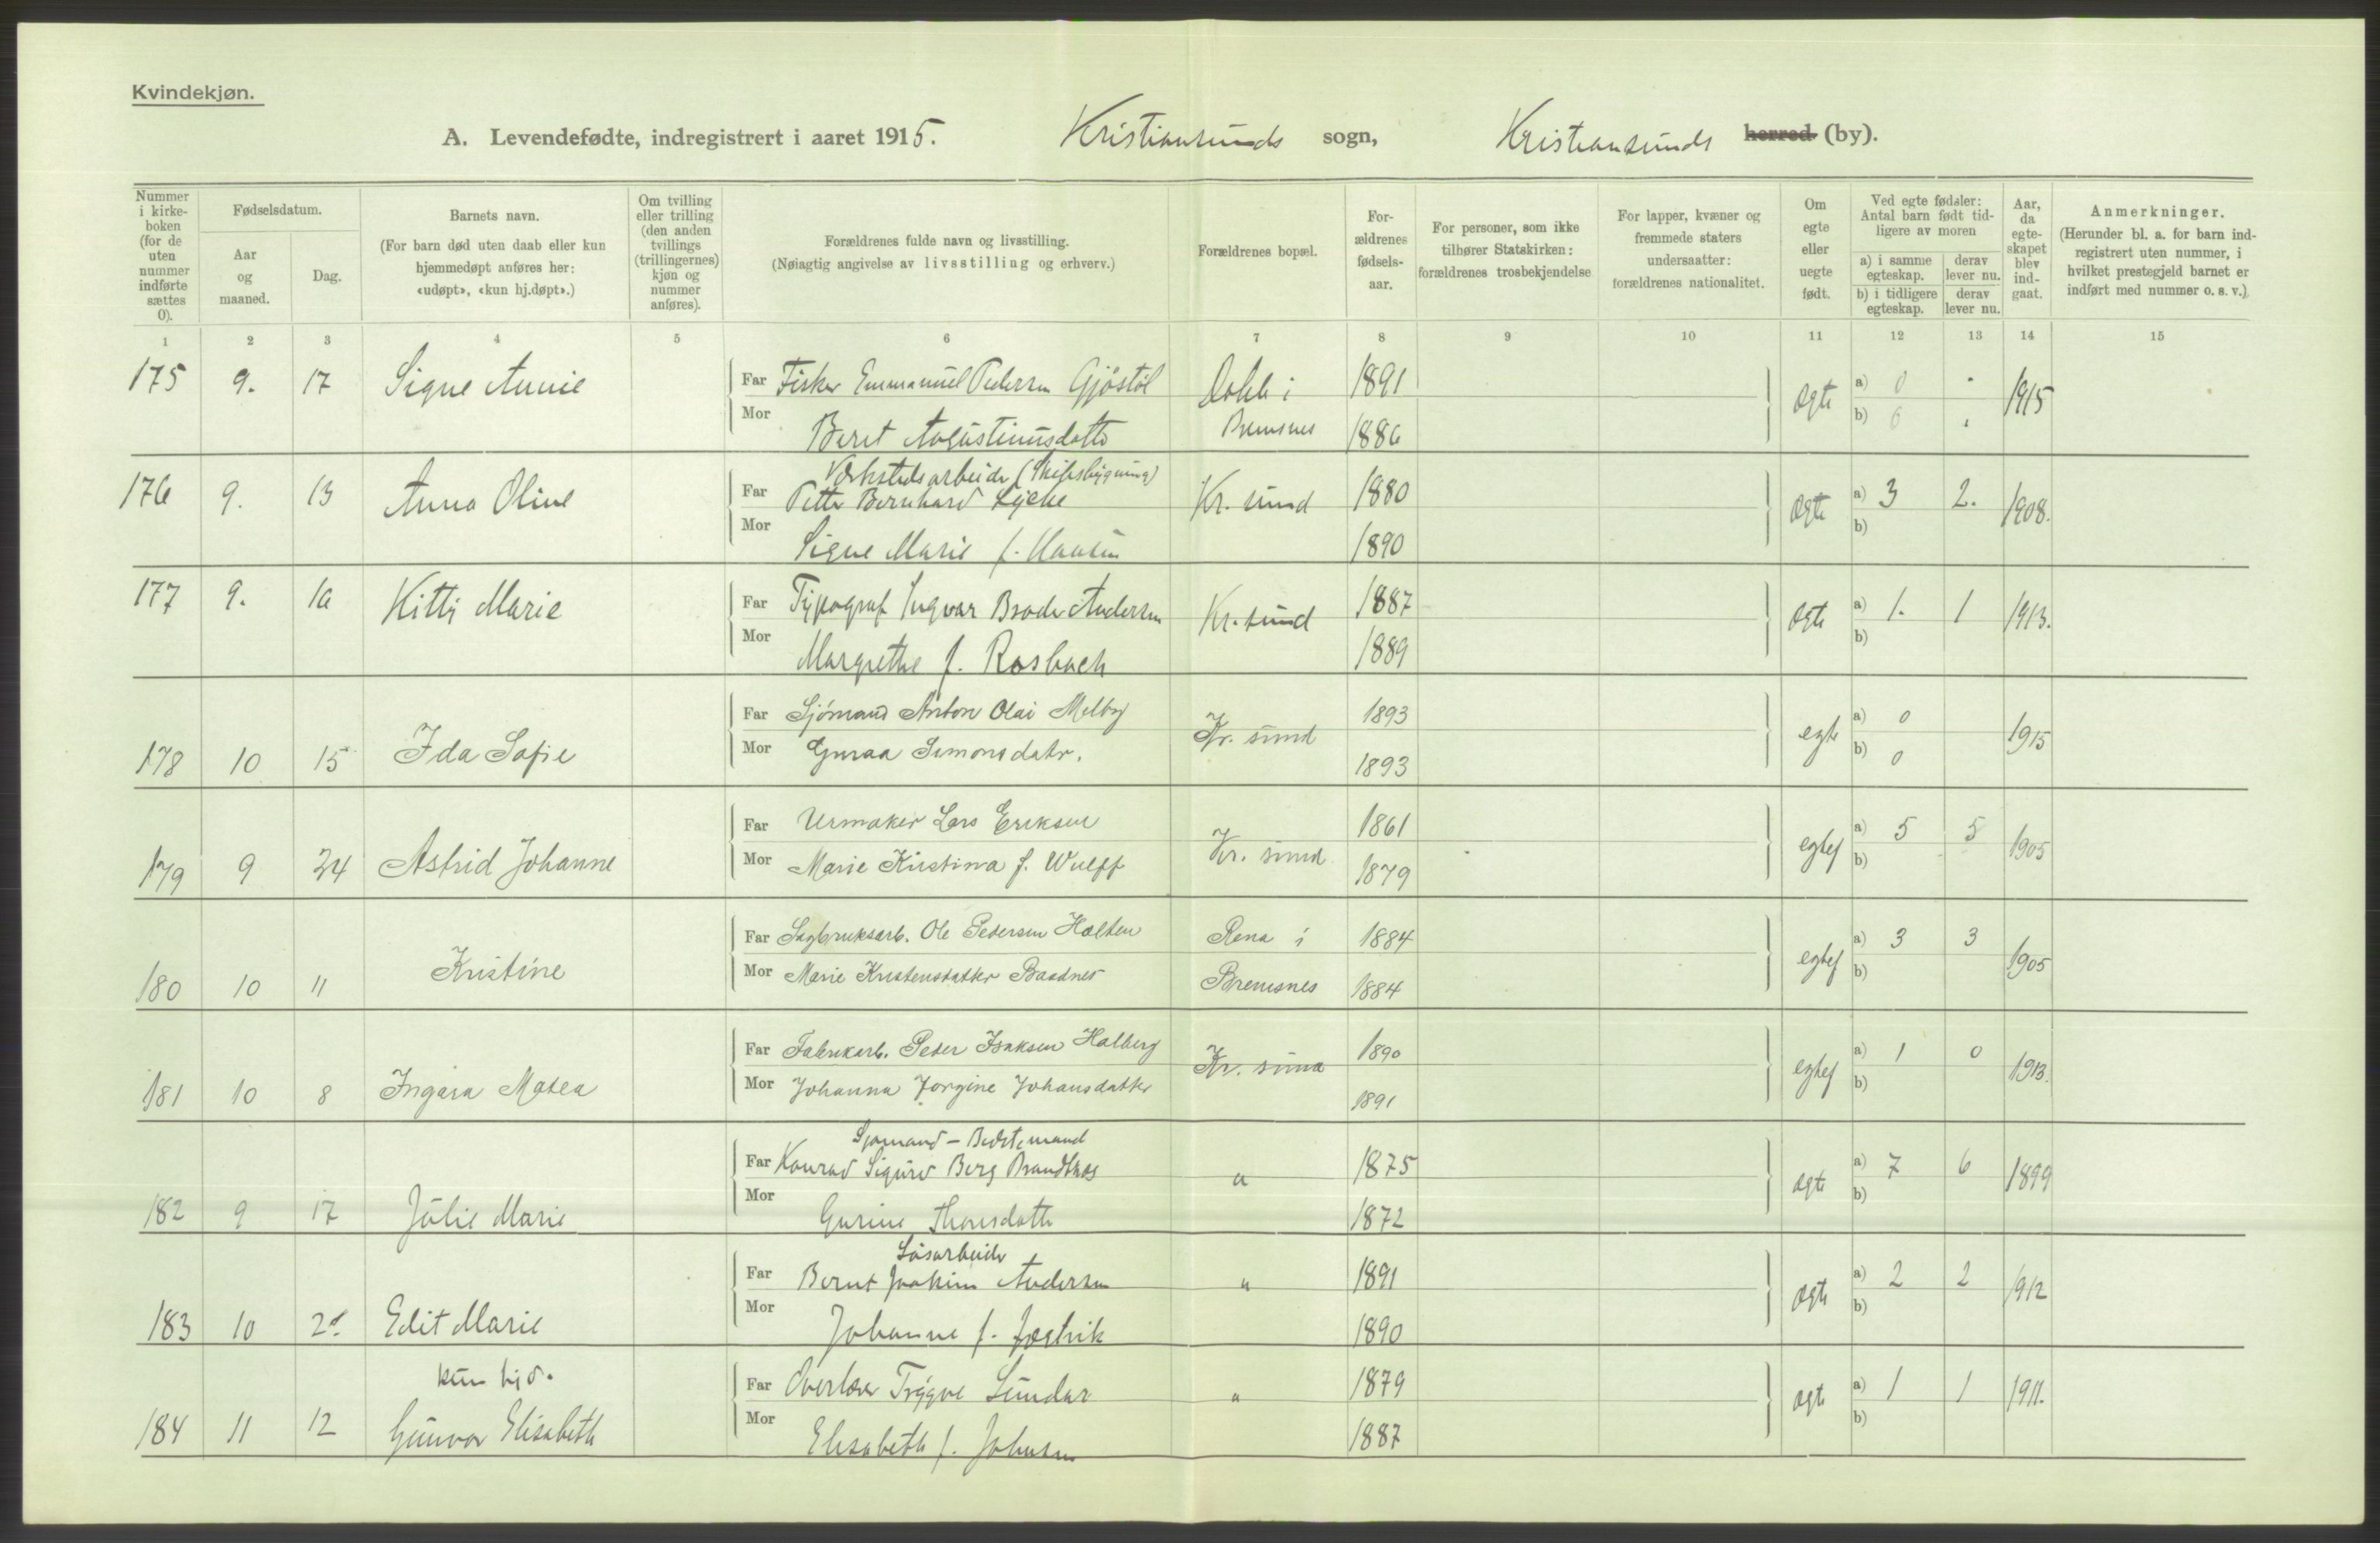 Kvindekjøn.
A. Levendefødte, indregistrert i aaret 1915. Kristiansunds sogn, Kristiansunds herred (by).
Nummer i kirkeboken (for de uten nummer indførte sættes 0).
Fødselsdatum.
Aar og maaned.
Dag.
Barnets navn.
(For barn død uten daab eller kun hjemmedøpt anføres her: «udøpt», «kun hj.døpt».)
Om tvilling eller trilling (den anden tvillings (trillingernes) kjøn og nummer anføres).
Forældrenes fulde navn og livsstilling.
(Nøiagtig angivelse av livsstilling og erhverv.)
Forældrenes bopæl.
Forældrenes fødselsaar.
For personer, som ikke tilhører Statskirken: forældrenes trosbekjendelse
For lapper, kvæner og fremmede staters undersaatter: forældrenes nationalitet.
Om egte eller uegte født.
Ved egte fødsler: Antal barn født tidligere av moren
a) i samme egteskap. derav lever nu.
b) i tidligere egteskap. derav lever nu.
Aar, da egteskapet blev indgaat.
Anmerkninger.
(Herunder bl. a. for barn indregistrert uten nummer, i hvilket prestegjeld barnet er indført med nummer o. s. v.)
1 2 3 4 5 6 7 8 9 10 11 12 13 14 15
175 9. 17 Signe Annie Far Fisker Emmanuel Pedersen Gjöstöl i 1891 Ægte a) 0 1915
Mor Beret Augustinusdatter Bremsnes 1886 b) 0
Verkstedsarbeider (Skibsbygning)
176 9. 13 Anna Oline Far Petter Bernhard Lycke Kr. sund 1880 Ægte a) 3 2. 1908.
Mor Signe Marie f. Hansen 1890 b)
177 9. Kitty Marie Far Typograf Ingvar Broder Andersen Kr. sund 1887 Ægte a) 1. 1 1913.
Mor Margrethe f. Rosbach 1889 b)
178 10 15 Ida Sofie Far Sjömand Anton Olai Melby Kr. sund 1893 egte a) 0 1915
Mor Guraa Simonsdatr. 1893 b) 0
179 9 24 Astrid Johanne Far Urmaker Lars Eriksen Kr. sund 1861 egtef a) 5 5 1905
Mor Marie Kristina f. Wulff 1879 b)
180 10 11 Kristine Far Sagbruksarb. Ole Pedersen Halten Rena i 1884 egtef a) 3 3 1905
Mor Marie Kristensdatter Baadnes Bremsnes 1884 b)
181 10 8 Ingara Matea Far Fabrikarb. Peder Isaksen Halberg Kr. sund 1890 egtef a) 1 0 1913.
Mor Johanna Jorgine Johansdatter 1891 b)
Sjomand - Bedstemand
182 9 17 Julie Marie Far Konrad Sigurd Berg " 1875 ægte a) 7 6 1899
Mor Gurine 1872 b)
Løsarbeider
183 10 Edit Marie Far Bernt Joakim Andersen " 1891 ægte a) 2 2 1912
Mor Johanne f. 1890 b)
kun hj d.
184 11 12 Gunvor Elisabeth Far Overlærer Trygve Sundar " 1879 ægte a) 1 1 1911.
Mor Elisabeth f. Johnsen 1887 b)